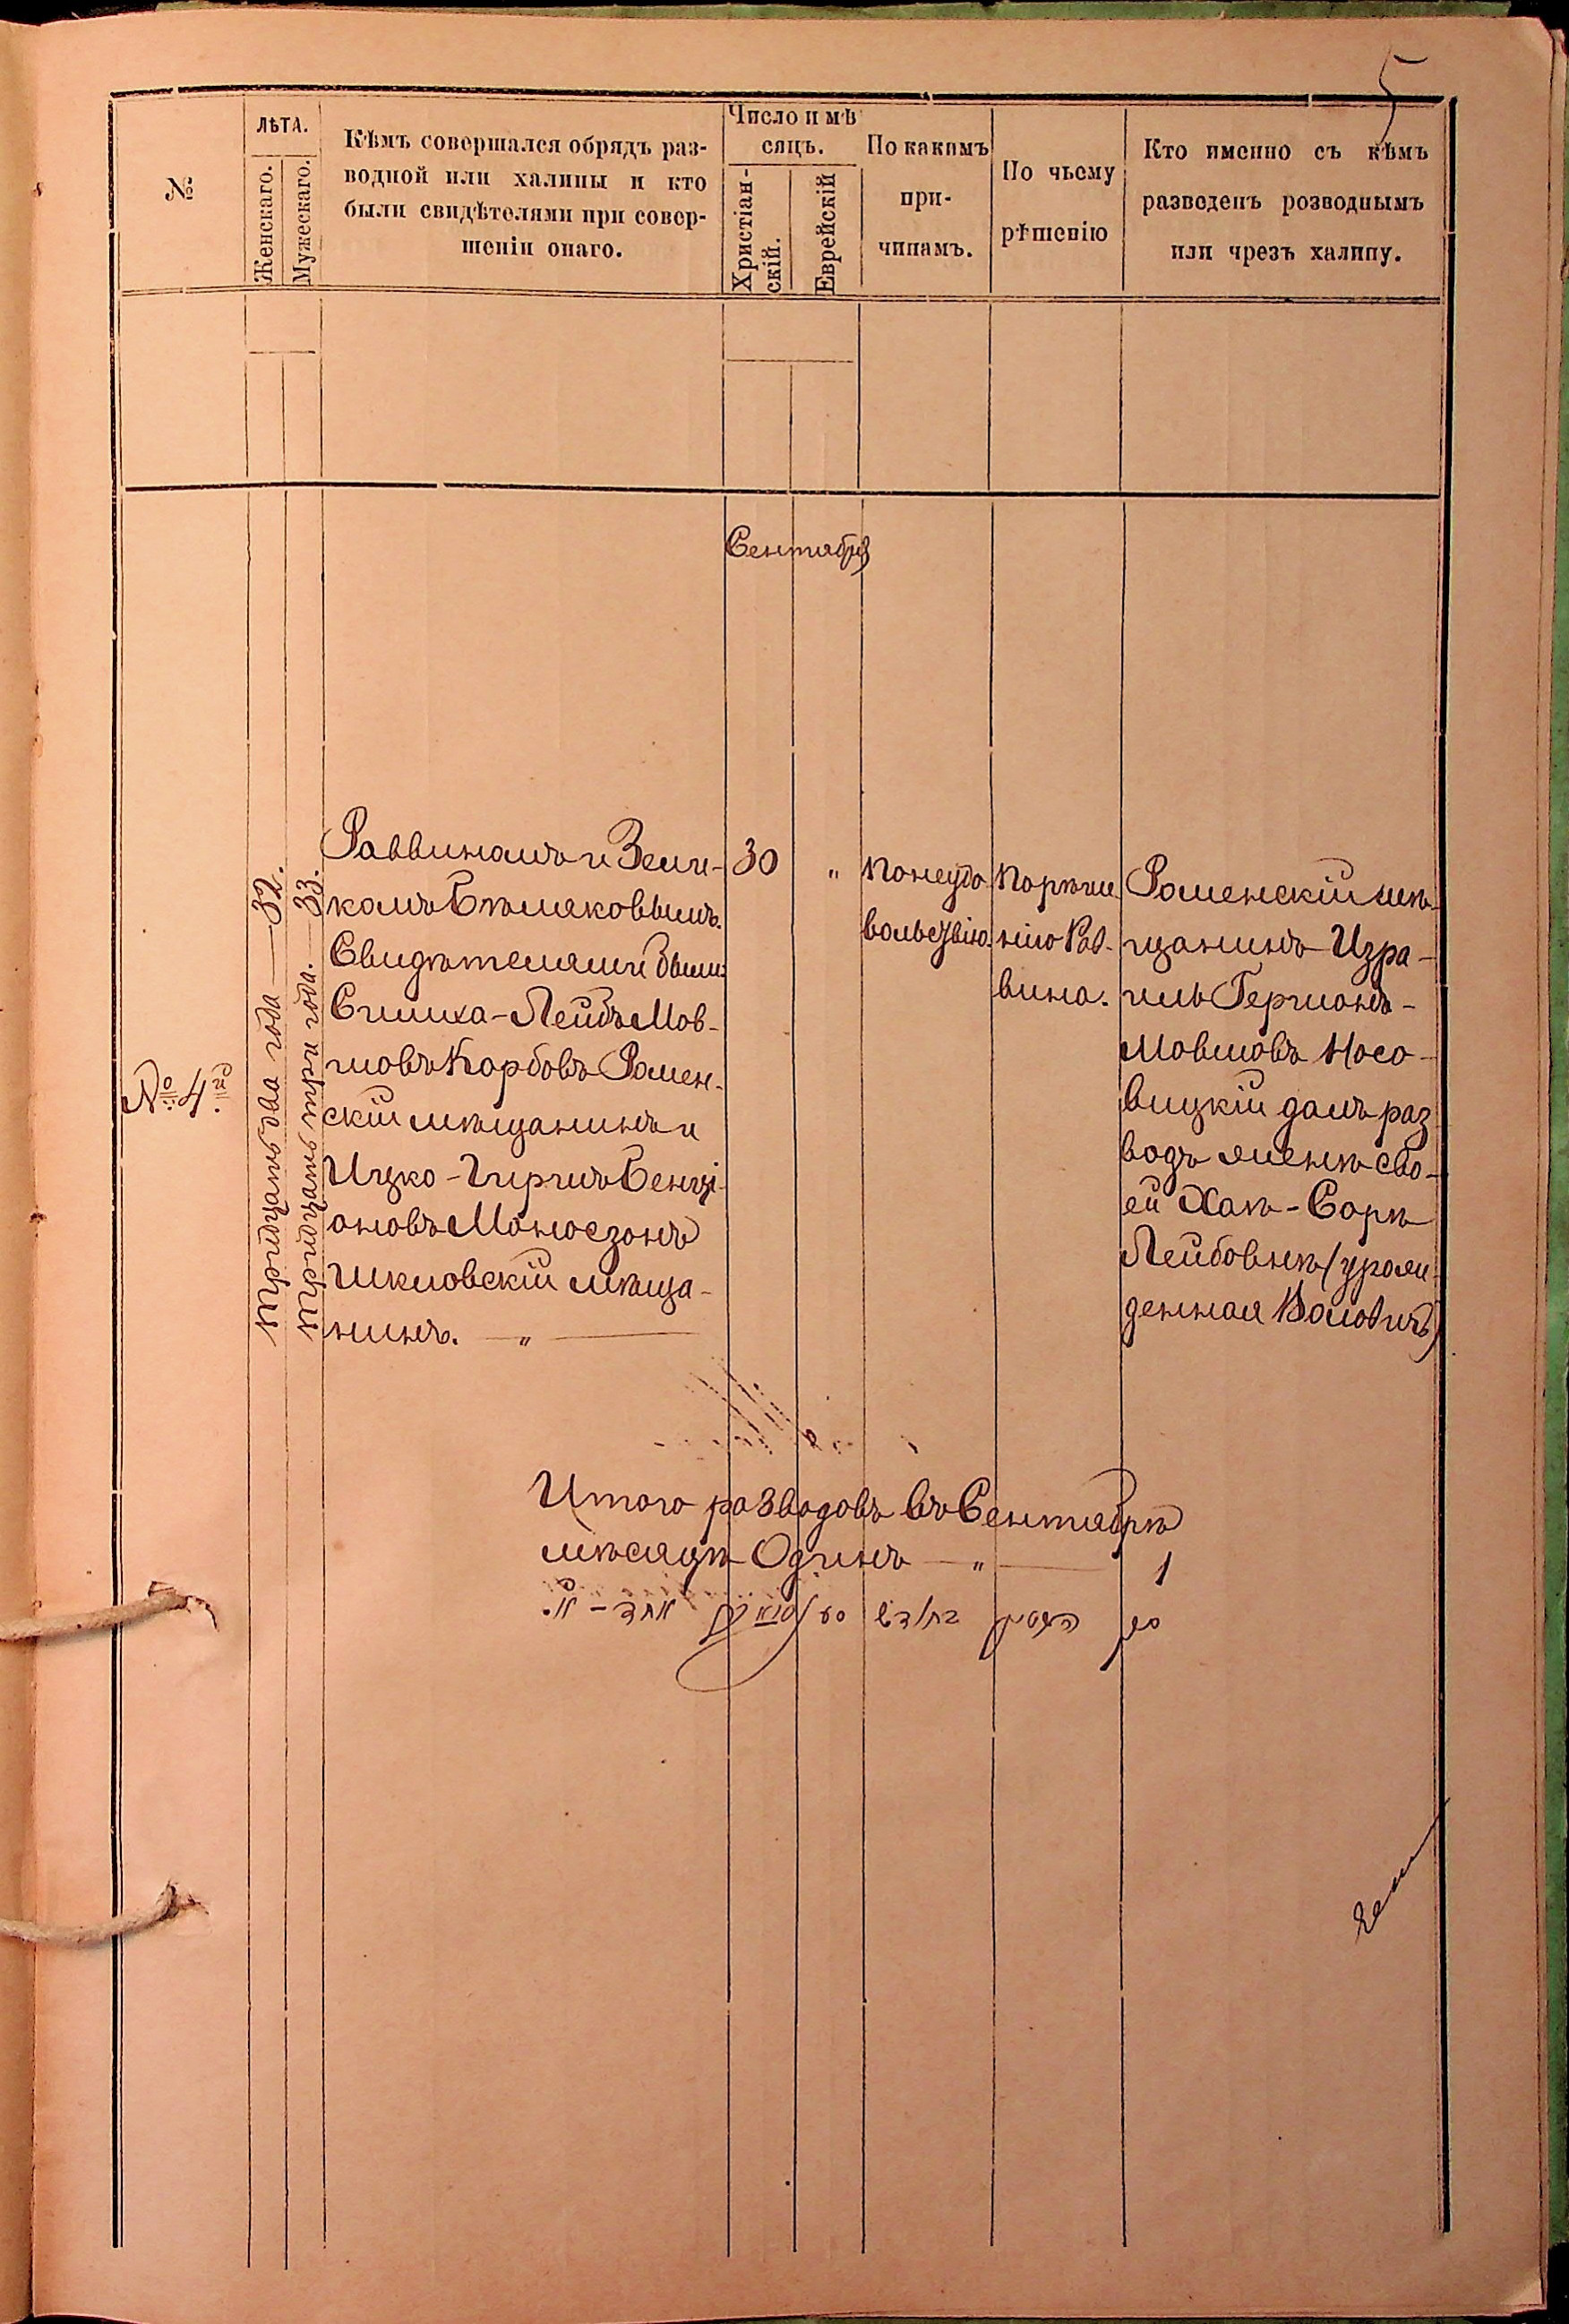 5
№
ЛѢТА.
Женскаго.
Мужескаго.
Кѣмъ совершался обрядъ раз-
водной или халицы и кто
были свидѣтелями при совер-
шеніи онаго.
Число и мѣ
сяцъ.
Христіан-
скій.
Еврейскій
По какимъ
при-
чинамъ.
По чьему
рѣшенію
Кто именно съ кѣмъ
разведенъ розводнымъ
или чрезъ халицу.
Сентября
№ 4й
Тридцать два года — 32.
Тридцать три года. — 33.
Раввиномъ и Зели-
комъ
Свидѣтелями были:
Симха-Лейбъ Мов-
шовъ Карбовъ Ромен-
скій мѣщанинъ и
Ицко-Гиршъ Бенці-
оновъ Моносзонъ
Шкловскій мѣща-
нинъ. — " —
30
"
По неудо
вольствію.
По рѣше
нію Рав-
вина.
Роменскій мѣ-
щанинъ Изра-
иль Германъ-
Мовшовъ Носо-
вицкій далъ раз
водъ женѣ сво-
ей Хаѣ-Сорѣ
Лейбовнѣ (урож-
денная
Итого разводовъ въ Сентябрѣ
мѣсяцѣ Одинъ — " — 1